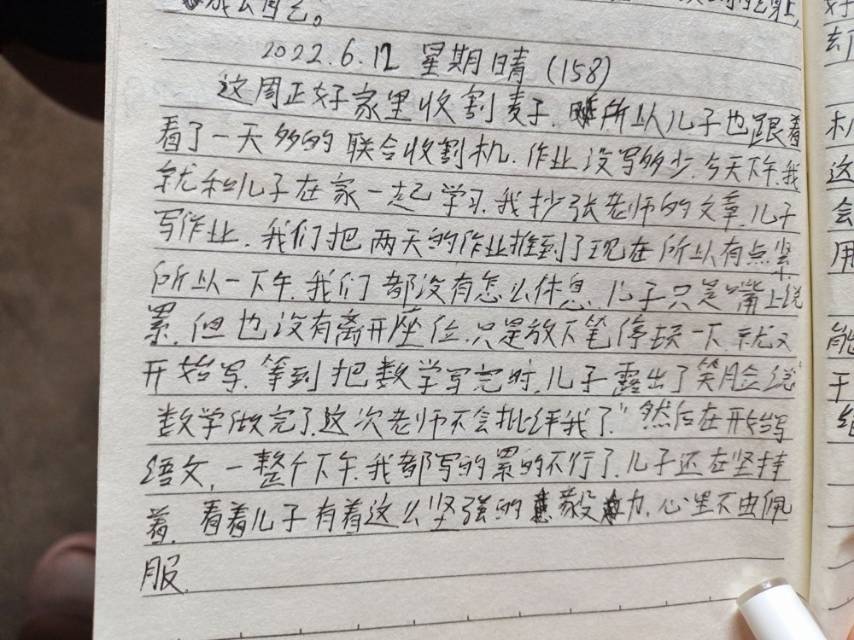 成公自己。
2022.6.12 星期日晴 (158)
这周正好家里收割麦子, 所以儿子也跟着
看了一天多的联合收割机. 作业没写多少. 今天下午. 我
就和儿子在家一起学习. 我抄张老师的文章. 儿子
写作业. 我们把两天的作业推到了现在 所以有点紧
所以一下午. 我们都没有怎么休息. 儿子只是嘴上说
累. 但也没有离开座位. 只是放下笔停顿一下 就又
开始写. 等到把数学写完时. 儿子露出了笑脸说“
数学做完了. 这次老师不会批评我了.” 然后在开始写
语文, 一整个下午. 我都写的累的不行了. 儿子还在坚持
着. 看着儿子有着这么坚强的毅力. 心里不由佩
服.
好
却
机
这
会
用
能
于